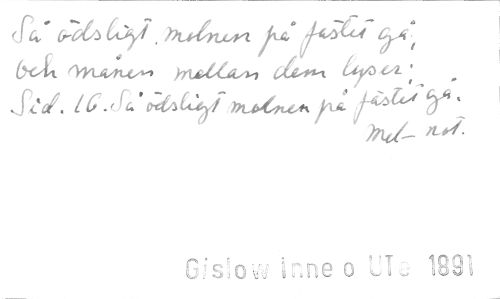 Så ödsligt molnen på fästet gå,
och månen mellan dem lyser;
Sid. 16. Så ödsligt molnen på fästet gå.
Mel- not.
Gislow Inne o Ute 1891